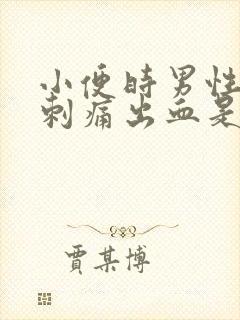 小便时男性
刺痛出血是
贾某博